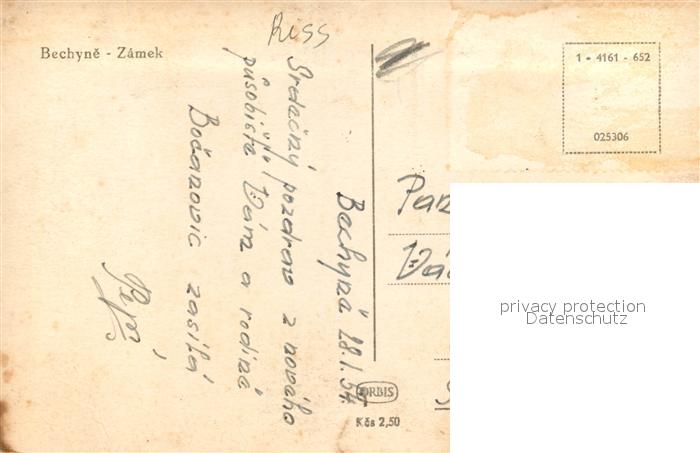 Riss
Bechyně - Zámek
1 - 4161 - 652
025306
Bechyně 28.1.54
Srdečný pozdrav z nového
působiště Vám a rodině
Bočanovic zasílá
Pepa
Pan
Vác
privacy protection
Datenschutz
ORBIS
Kčs 2,50